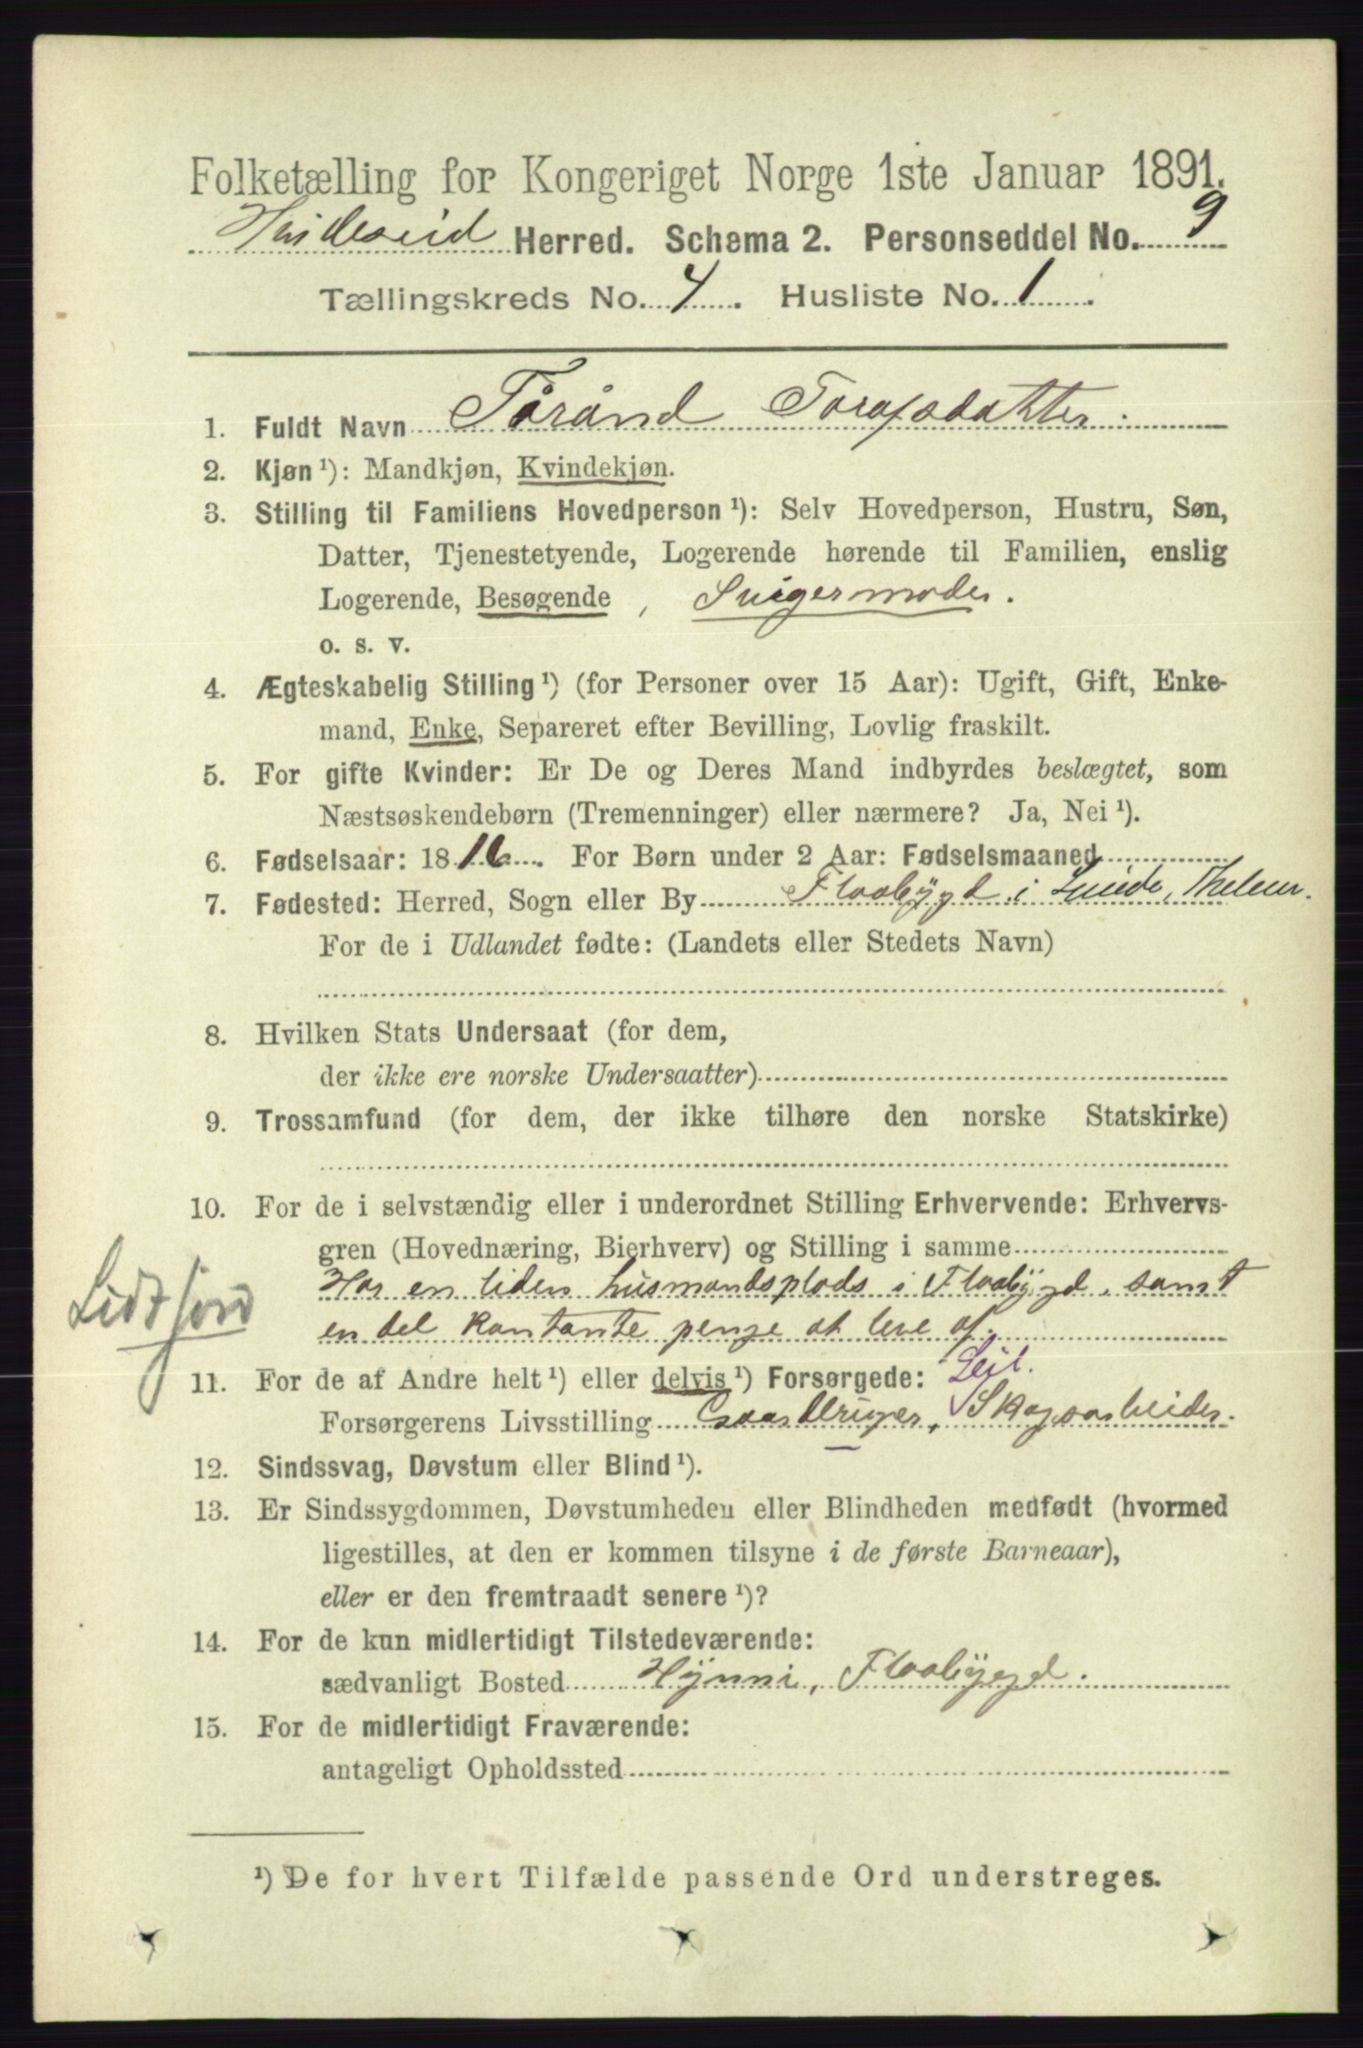 Folketælling for Kongeriget Norge 1ste Januar 1891.
Hvideseid Herred. Schema 2. Personseddel No. 9
Tællingskreds No. 4. Husliste No. 1.
1. Fuldt Navn Tòrånd Torafsdatter.
2. Kjøn ¹): Mandkjøn, Kvindekjøn.
3. Stilling til Familiens Hovedperson ¹): Selv Hovedperson, Hustru, Søn,
Datter, Tjenestetyende, Logerende hørende til Familien, enslig
Logerende, Besøgende, Svigermoder.
o. s. v.
4. Ægteskabelig Stilling ¹) (for Personer over 15 Aar): Ugift, Gift, Enke-
mand, Enke, Separeret efter Bevilling, Lovlig fraskilt.
5. For gifte Kvinder: Er De og Deres Mand indbyrdes beslægtet, som
Næstsøskendebørn (Tremenninger) eller nærmere? Ja, Nei ¹).
6. Fødselsaar: 1816. For Børn under 2 Aar: Fødselsmaaned
7. Fødested: Herred, Sogn eller By Flaabygd i Lunde, Thelem.
For de i Udlandet fødte: (Landets eller Stedets Navn)
8. Hvilken Stats Undersaat (for dem,
der ikke ere norske Undersaatter)
9. Trossamfund (for dem, der ikke tilhøre den norske Statskirke)
10. For de i selvstændig eller i underordnet Stilling Erhvervende: Erhvervs-
gren (Hovednæring, Bierhverv) og Stilling i samme
Har en liden husmandsplads i Flaabygd, samt
Lidtjord
en del kontante penge at leve af.
Leil.
11. For de af Andre helt ¹) eller delvis ¹) Forsørgede:
Forsørgerens Livsstilling Gaardbruger, Skogsarbeider.
12. Sindssvag, Døvstum eller Blind ¹).
13. Er Sindssygdommen, Døvstumheden eller Blindheden medfødt (hvormed
ligestilles, at den er kommen tilsyne i de første Barneaar),
eller er den fremtraadt senere ¹)?
14. For de kun midlertidigt Tilstedeværende:
sædvanligt Bosted Hynni, Flaabygd.
15. For de midlertidigt Fraværende:
antageligt Opholdssted
¹) De for hvert Tilfælde passende Ord understreges.